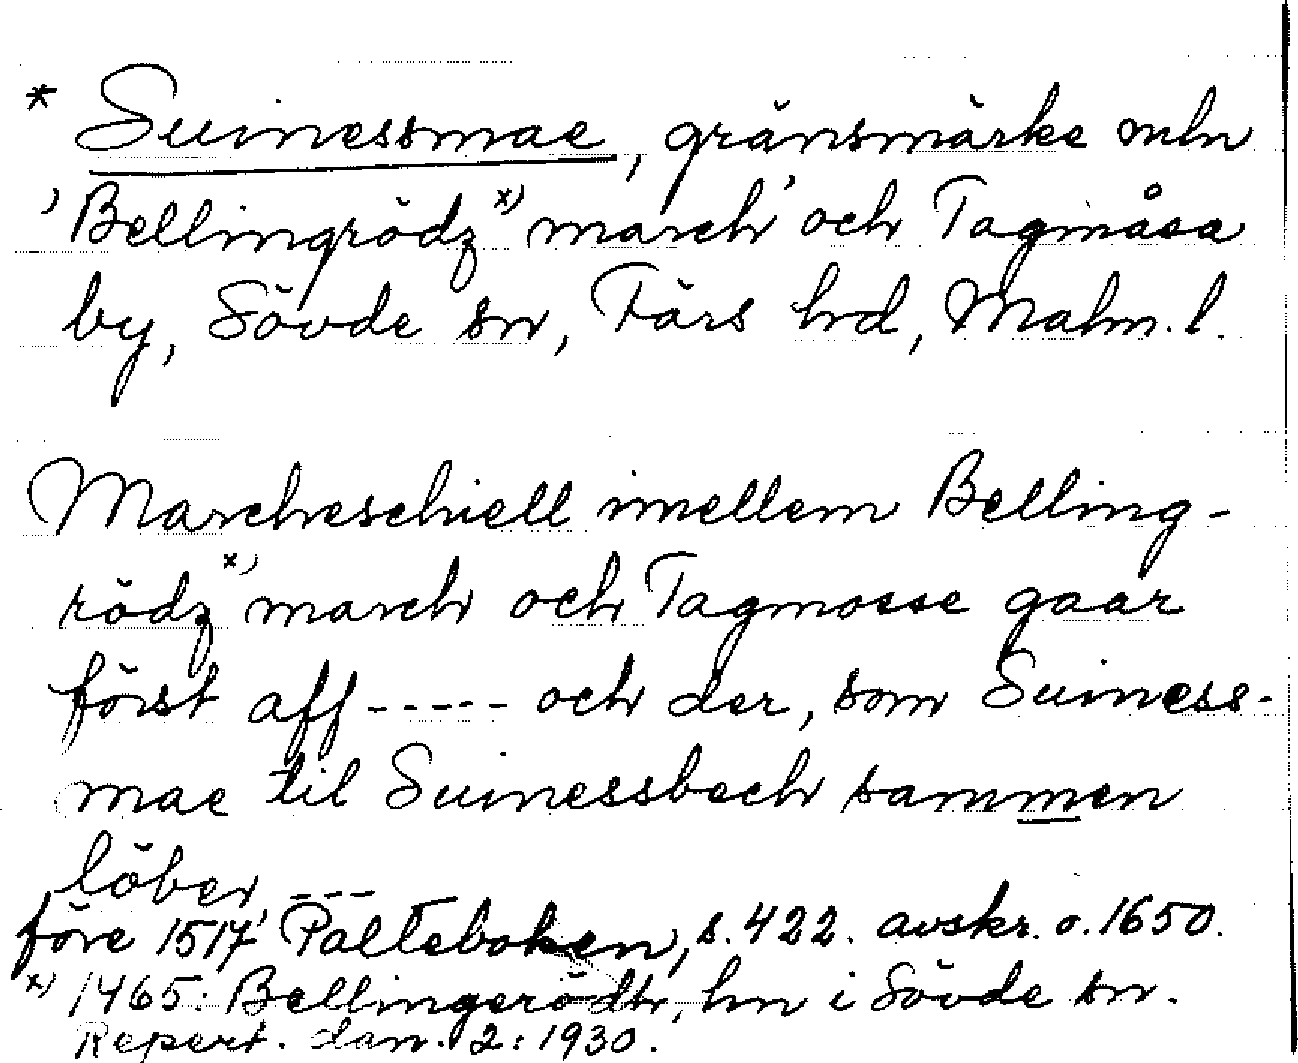 * Suinessmae, gränsmärke mln
'Bellingrödz x) march' och Tagmåsa
by, Sövde sn, Färs hd, Malm. l.
Marcheschiell imellem Belling-
rödz x) march och Tagmosse gaar
först aff ----- och der, som Suiness-
mae til Suinessbech sammen
löber ---
före 1517 Palteboken, s. 422. avskr. o. 1650.
x) 1465: Bellingerödh, hn i Sövde sn.
Repert. dan. 2: 1930.